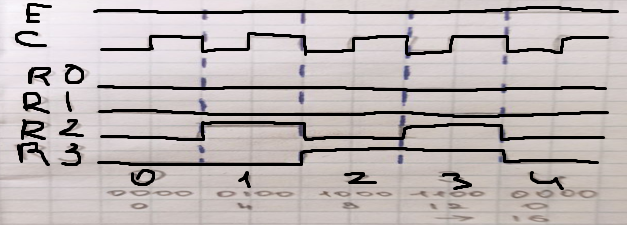 E
C
R0
R1
R2
R3
0 1 2 3 4
0000 0100 1000 1100 0000
0 4 8 12 0
→ 16